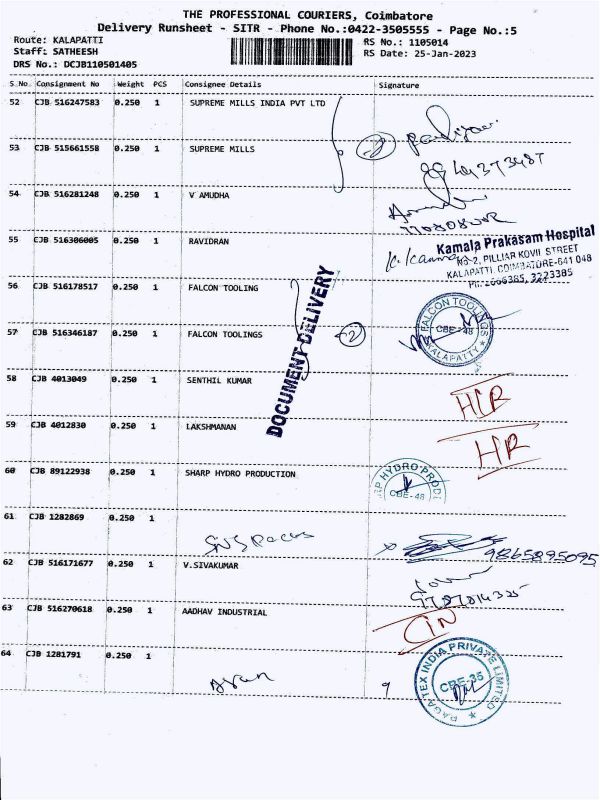 THE PROFESSIONAL COURIERS, Coimbatore
Delivery Runsheet - SITR - Phone No.:0422-3505555 - Page No.:5
Route: KALAPATTI RS No.: 1105014
Staff: SATHEESH RS Date: 25-Jan-2023
DRS No.: DCJB110501405
S No. Consignment No Weight PCS Consignee Details Signature
52 CJB 516247583 0.250 1 SUPREME MILLS INDIA PVT LTD
53 CJB 515661558 0.250 1 SUPREME MILLS 2
54 CJB 516281248 0.250 1 V AMUDHA
55 CJB 516306005 0.250 1 RAVIDRAN
Kamala Prakasam Hospital
NO-2, PILLIAR KOVIL STREET
KALAPATTI, COIMBATORE-641 048
PH: 2666385, 3223385
56 CJB 516178517 0.250 1 FALCON TOOLING
57 CJB 516346187 0.250 1 FALCON TOOLINGS 2
FALCON TOOLINGS
CBE-48
KALAPATTY
DOCUMENT DELIVERY
58 CJB 4013049 0.250 1 SENTHIL KUMAR
59 CJB 4012830 0.250 1 LAKSHMANAN HR
60 CJB 89122938 0.250 1 SHARP HYDRO PRODUCTION
RP HYDRO PRODU
CBE-48
61 CJB 1282869 0.250 1
9865895095
62 CJB 516171677 0.250 1 V.SIVAKUMAR
63 CJB 516270618 0.250 1 AADHAV INDUSTRIAL
64 CJB 1281791 0.250 1
RAGATEX INDIA PRIVATE LIMITED
CBE-35